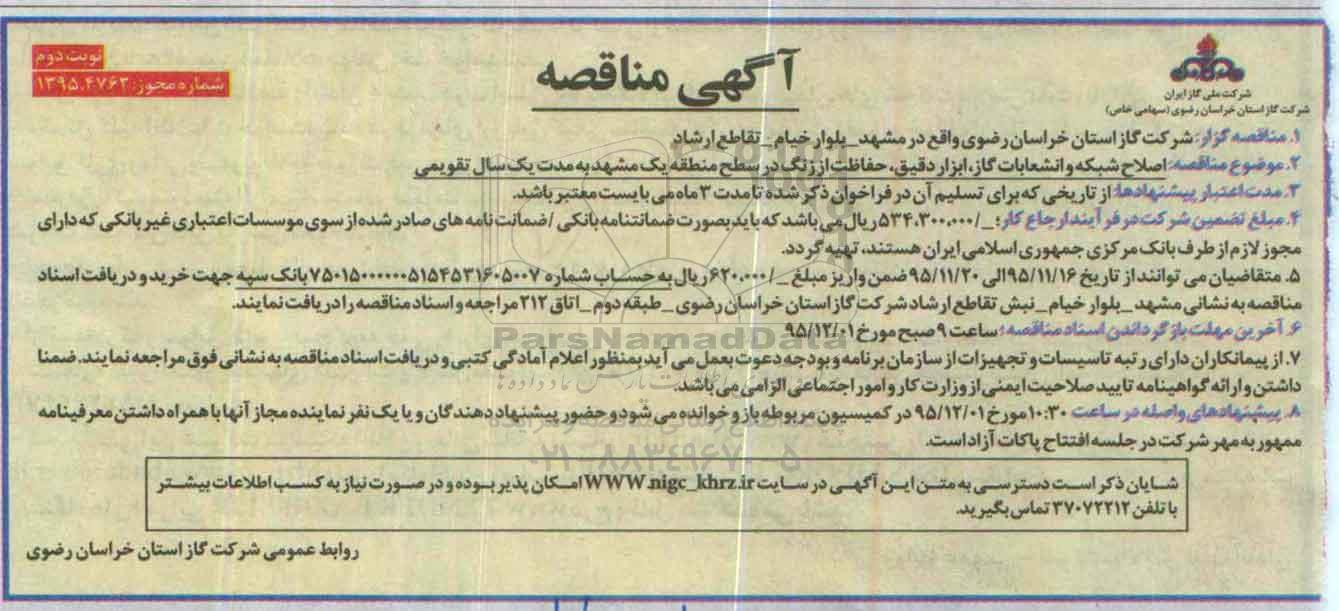 آگهی مناقصه
نوبت دوم
شماره مجوز: ۱۳۹۵.۴۷۶۳
شرکت ملی گاز ایران
شرکت گاز استان خراسان رضوی (سهامی خاص)
۱. مناقصه گزار: شرکت گاز استان خراسان رضوی واقع در مشهد_بلوار خیام_تقاطع ارشاد
۲. موضوع مناقصه: اصلاح شبکه و انشعابات گاز، ابزار دقیق، حفاظت از زنگ در سطح منطقه یک مشهد به مدت یک سال تقویمی
۳. مدت اعتبار پیشنهادها: از تاریخی که برای تسلیم آن در فراخوان ذکر شده تا مدت ۳ ماه می بایست معتبر باشد.
۴. مبلغ تضمین شرکت در فرآیند ارجاع کار: _/۵۳۴،۳۰۰،۰۰۰ ریال می باشد که باید بصورت ضمانتنامه بانکی / ضمانت نامه های صادر شده از سوی موسسات اعتباری غیر بانکی که دارای
مجوز لازم از طرف بانک مرکزی جمهوری اسلامی ایران هستند، تهیه گردد.
۵. متقاضیان می توانند از تاریخ ۹۵/۱۱/۱۶ الی ۹۵/۱۱/۲۰ ضمن واریز مبلغ _/۶۲۰،۰۰۰ ریال به حساب شماره ۷۵۰۱۵۰۰۰۰۰۰۵۱۵۴۵۳۱۶۰۵۰۰۷ بانک سپه جهت خرید و دریافت اسناد
مناقصه به نشانی مشهد_بلوار خیام_نبش تقاطع ارشاد شرکت گاز استان خراسان رضوی _طبقه دوم_اتاق ۲۱۲ مراجعه و اسناد مناقصه را دریافت نمایند.
۶. آخرین مهلت بازگرداندن اسناد مناقصه: ساعت ۹ صبح مورخ ۹۵/۱۲/۰۱
۷. از پیمانکاران دارای رتبه تاسیسات و تجهیزات از سازمان برنامه و بودجه دعوت بعمل می آید بمنظور اعلام آمادگی کتبی و دریافت اسناد مناقصه به نشانی فوق مراجعه نمایند. ضمنا
داشتن و ارائه گواهینامه تایید صلاحیت ایمنی از وزارت کار و امور اجتماعی الزامی می باشد.
۸. پیشنهادهای واصله در ساعت ۱۰:۳۰ مورخ ۹۵/۱۲/۰۱ در کمیسیون مربوطه باز و خوانده می شود و حضور پیشنهاد دهندگان و یا یک نفر نماینده مجاز آنها با همراه داشتن معرفینامه
ممهور به مهر شرکت در جلسه افتتاح پاکات آزاد است.
شایان ذکر است دسترسی به متن این آگهی در سایت WWW.nigc_khrz.ir امکان پذیر بوده و در صورت نیاز به کسب اطلاعات بیشتر
با تلفن ۳۷۰۷۲۲۱۲ تماس بگیرید.
روابط عمومی شرکت گاز استان خراسان رضوی
ParsNamadData
۰۲۱-۸۸۳۴۹۶۷۰-۵